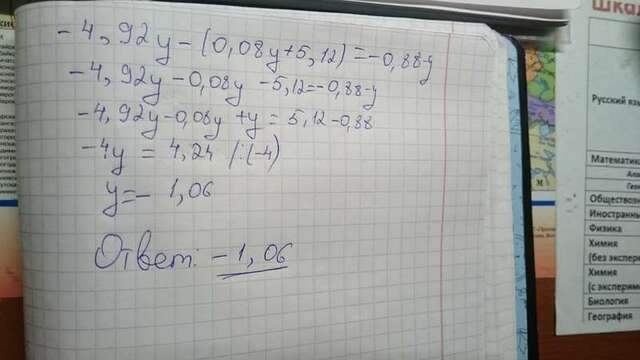 -4,92y-(0,08y+5,12)=-0,88-y
-4,92y-0,08y-5,12=-0,88-y
-4,92y-0,08y+y=5,12-0,88
-4y=4,24 /:(-4)
y=-1,06
Ответ: -1,06
Шкал
Русский
Математика
Иностранны
Физика
Химия
(без экспери
Химия
(с эксперим
Биология
География